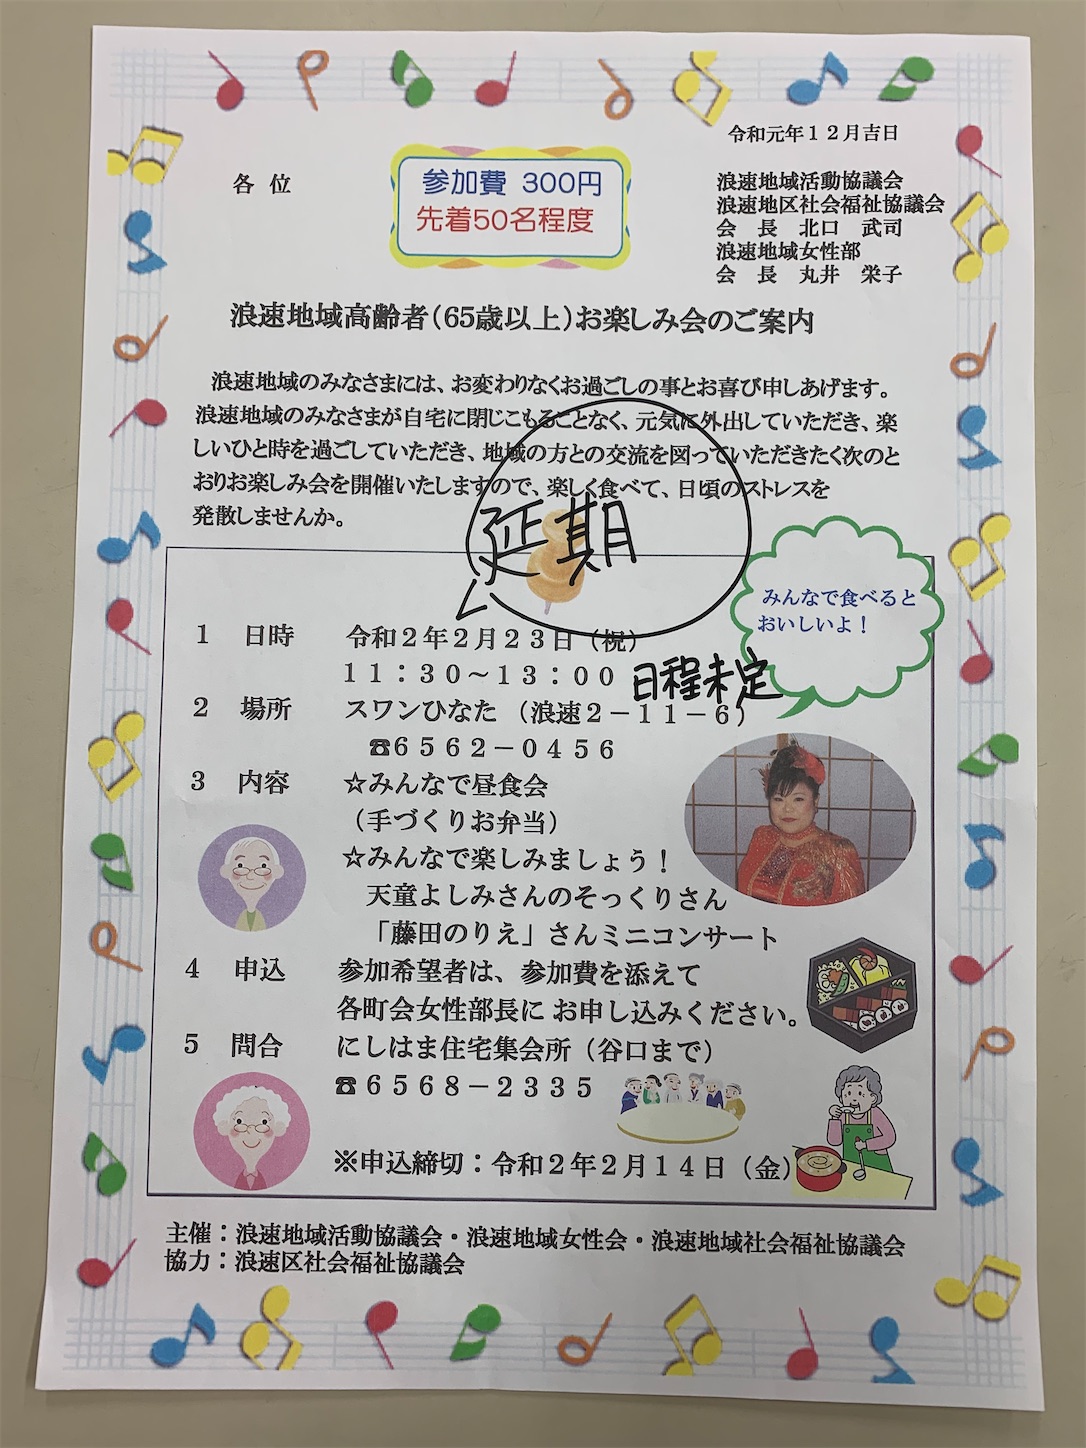 令和元年１２月吉日
各 位
参加費 300円
先着50名程度
浪速地域活動協議会
浪速地区社会福祉協議会
会　長　北口　武司
浪速地域女性部
会　長　丸井　栄子
浪速地域高齢者（65歳以上）お楽しみ会のご案内
浪速地域のみなさまには、お変わりなくお過ごしの事とお喜び申しあげます。
浪速地域のみなさまが自宅に閉じこもることなく、元気に外出していただき、楽
しいひと時を過ごしていただき、地域の方との交流を図っていただきたく次のと
おりお楽しみ会を開催いたしますので、楽しく食べて、日頃のストレスを
発散しませんか。
延期
みんなで食べると
おいしいよ！
１　日時　令和２年２月２３日（祝）
１１：３０～１３：００
日程未定
２　場所　スワンひなた （浪速２－１１－６）
☎６５６２－０４５６
３　内容　☆みんなで昼食会
（手づくりお弁当）
☆みんなで楽しみましょう！
天童よしみさんのそっくりさん
「藤田のりえ」さんミニコンサート
４　申込　参加希望者は、参加費を添えて
各町会女性部長に お申し込みください。
５　問合　にしはま住宅集会所（谷口まで）
☎６５６８－２３３５
※申込締切：令和２年２月１４日（金）
主催：浪速地域活動協議会・浪速地域女性会・浪速地域社会福祉協議会
協力：浪速区社会福祉協議会